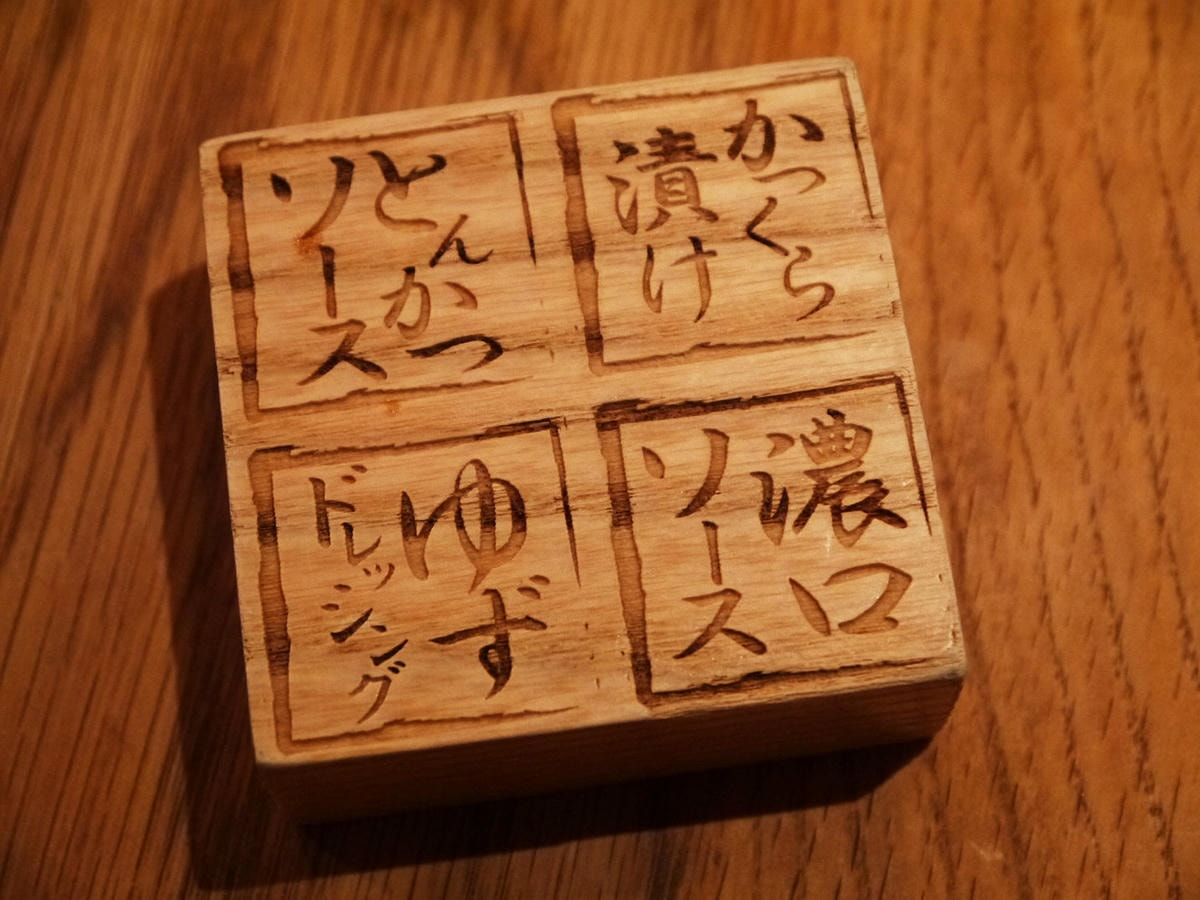 とんかつ
ソース
かつくら
漬け
ゆず
ドレッシング
濃口
ソース